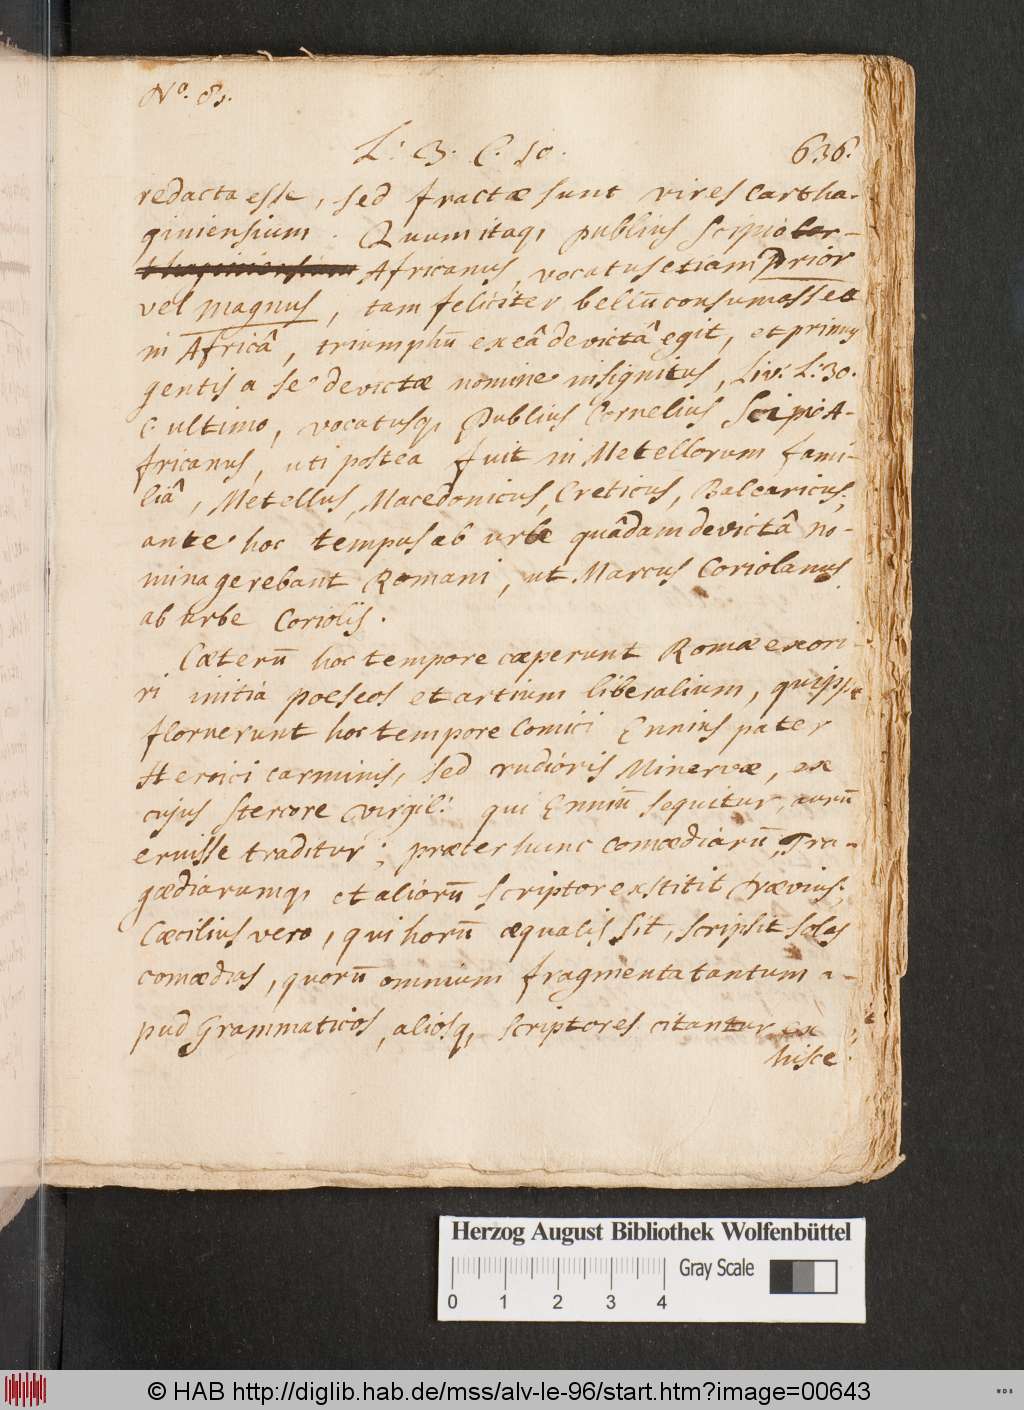 No. 81.
L: 3. C. 10. 636.
redacta esse, sed fractæ sunt vires Cartha-
giniensium. Quum itaq, publius Scipio Car-
thaginiensium Africanus, vocatus etiam prior
vel magnus, tam feliciter bellū consumasset
in Africâ, triumphū ex eâ devictâ egit, et primus
gentis a se devictæ nomine insignitus, Liv: L: 30.
C ultimo, vocatusq, Publius Cornelius Scipio A-
fricanus, uti postea fuit in Metellorum fami-
liâ, Metellus, Macedonicus, Creticus, Balearicus;
ante hoc tempus ab urbe quâdam devictâ no-
mina gerebant Romani, ut Marcus Coriolanus
ab urbe Coriolis.
Cæterū hoc tempore cæperunt Romæ exori-
ri initia poeseos et artium liberalium, quippe
floruerunt hoc tempore Comici Ennius pater
Heroici carminis, sed rudioris Minervæ, ex
cujus stercore Virgil: qui Enniū sequitur, aurū
eruisse traditur; præter hunc comœdiarū, Tra-
gædiarumq, et aliorū scriptor exstitit Nævius;
Cæcilius vero, qui horū æqualis sit, scripsit solas
comædias, quorū omnium fragmenta tantum a-
pud Grammaticos, aliosq, scriptores citantur ex
hisce
Herzog August Bibliothek Wolfenbüttel
Gray Scale
0 1 2 3 4
© HAB http://diglib.hab.de/mss/alv-le-96/start.htm?image=00643